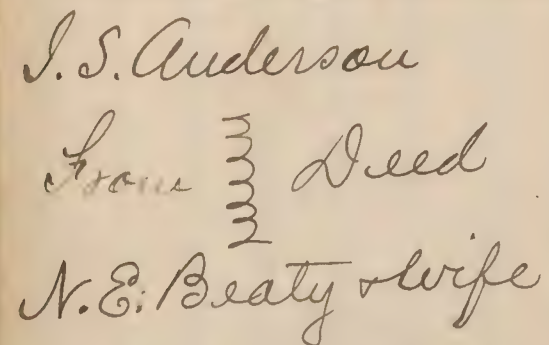 I. S. Anderson
From Deed
N. E. Beaty & Wife